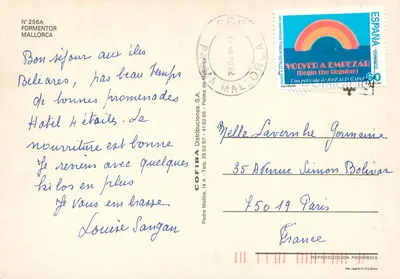 N° 256A
FORMENTOR
MALLORCA
Bon séjour aux iles
Baleares, pas beau temps
de bonnes promenades
Hotel 4 étoile. La
nourriture est bonne
Je reviens avec quelques
kilos en plus
Je vous embrasse
Louise Sangan
COFIBA Distribuciones, S.A.
Padre Molina, 14 A - Tels. 29 52 87 - 41 50 65 - Palma de Mallorca
PALMA MALLORCA
ESPAÑA
VOLVER A EMPEZAR
(Begin the Beguine)
Una película de JOSÉ LUIS GARCI
60
Melle Lavernhe Germaine
35 Avenue Simon Bolivar
75019 Paris
France
REPRODUCCIÓN PROHIBIDA